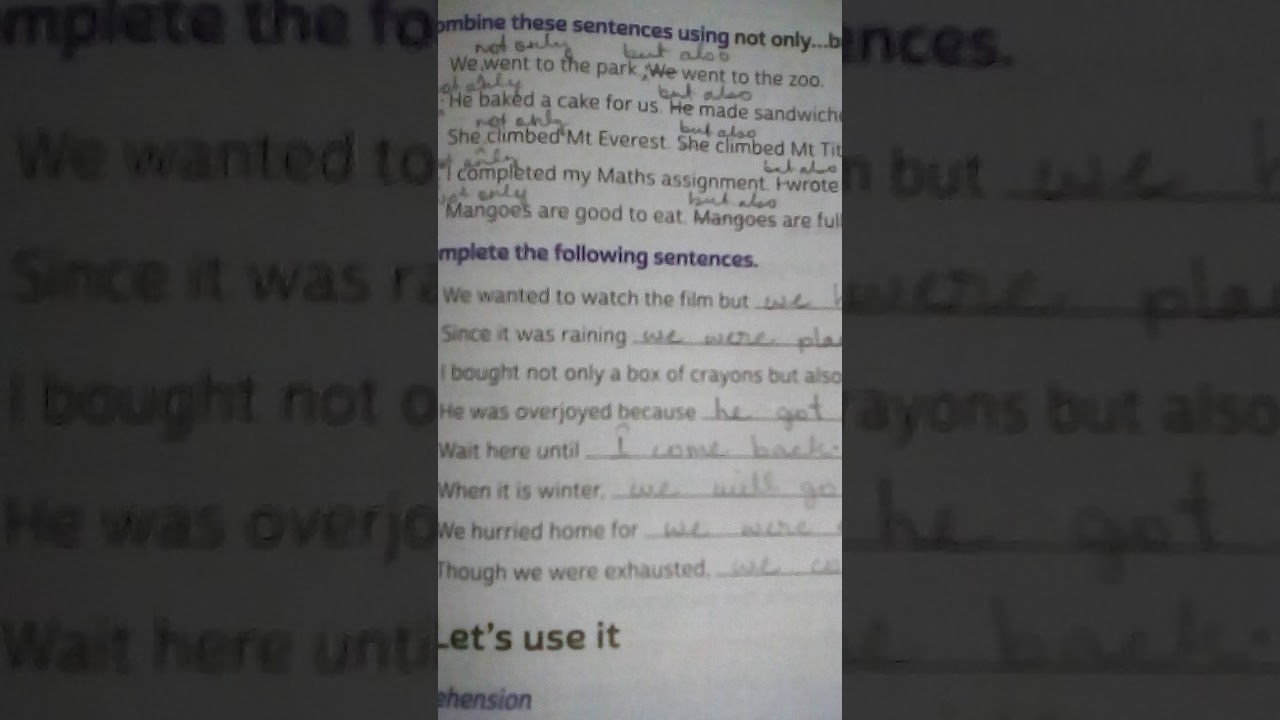 ombine these sentences using not only...b
not only but also
We went to the park. We went to the zoo.
ot only but also
He baked a cake for us. He made sandwich
not only but also
She climbed Mt Everest. She climbed Mt Tit
ot only but also
I completed my Maths assignment. I wrote
not only but also
Mangoes are good to eat. Mangoes are full
mplete the following sentences.
We wanted to watch the film but we h
Since it was raining we were pla
I bought not only a box of crayons but also
He was overjoyed because he got
Wait here until I come back.
When it is winter, we will go
We hurried home for we were
Though we were exhausted, we co
Let's use it
ehension